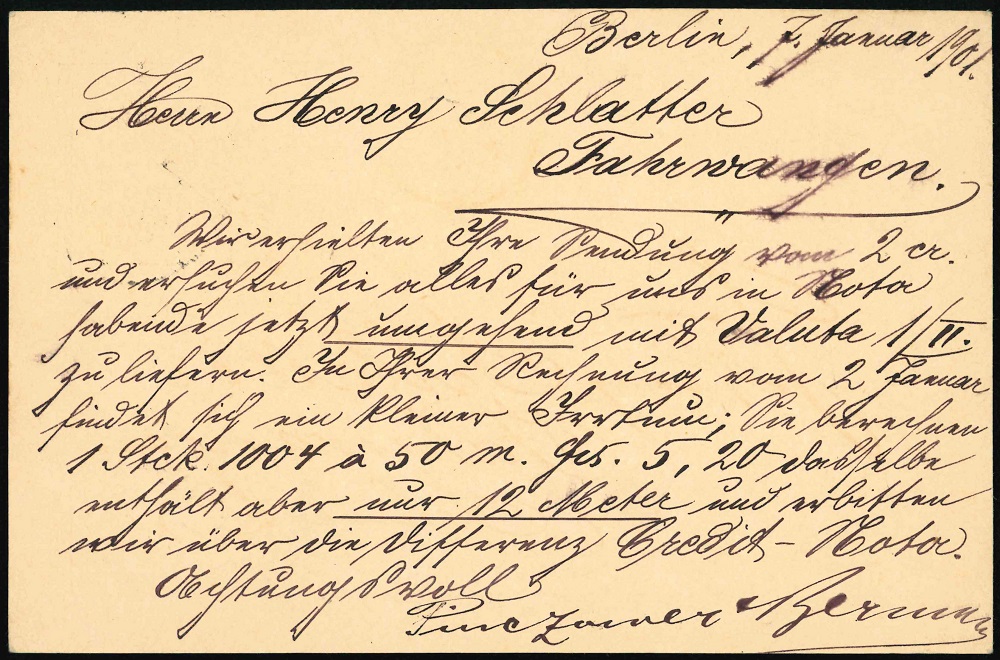 Berlin, 7. Januar 1901.
Herrn Henry Schlatter
Fahrwangen.
Wir erhielten Ihre Sendung vom 2 cr.
und ersuchen Sie alles für uns in Nota
habende jetzt umgehend mit Valuta 1/II.
zu liefern. In Ihrer Rechnung vom 2 Januar
findet sich ein kleiner Irrtum; Sie berechnen
1 Stck. 1004 à 50 m. frs. 5,20 dasselbe
enthält aber nur 12 Meter und erbitten
wir über die Differenz Credit-Nota.
Achtungsvoll
Pinczower &